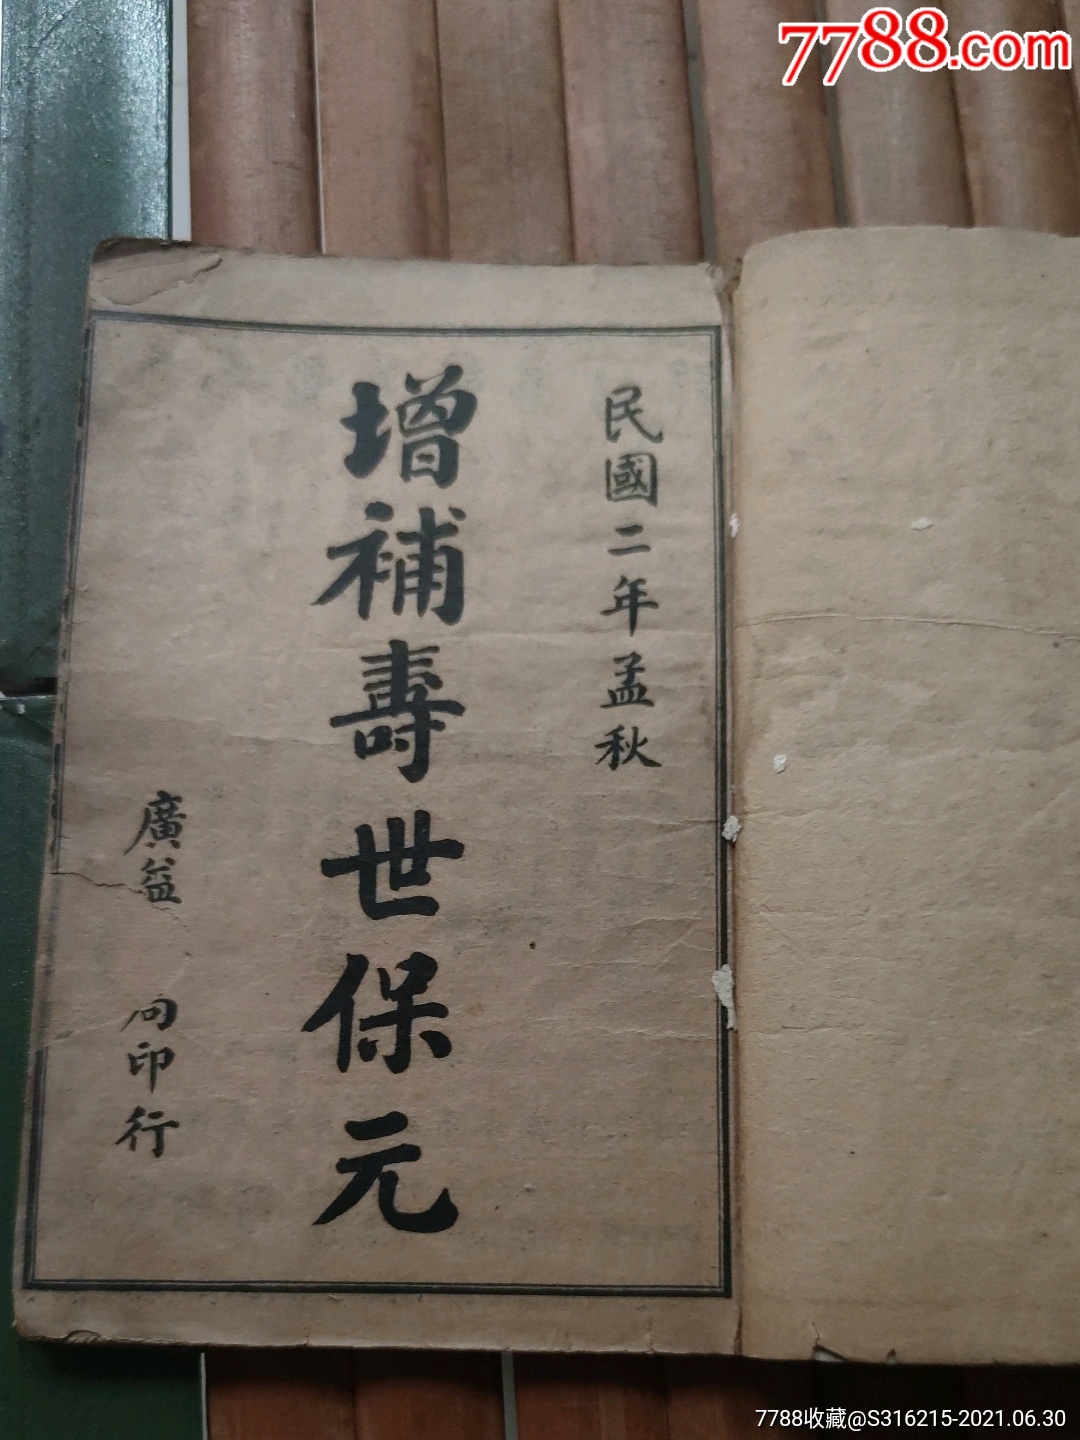 7788.com
民國二年孟秋
增補壽世保元
廣益
局印行
7788收藏@S316215-2021.06.30